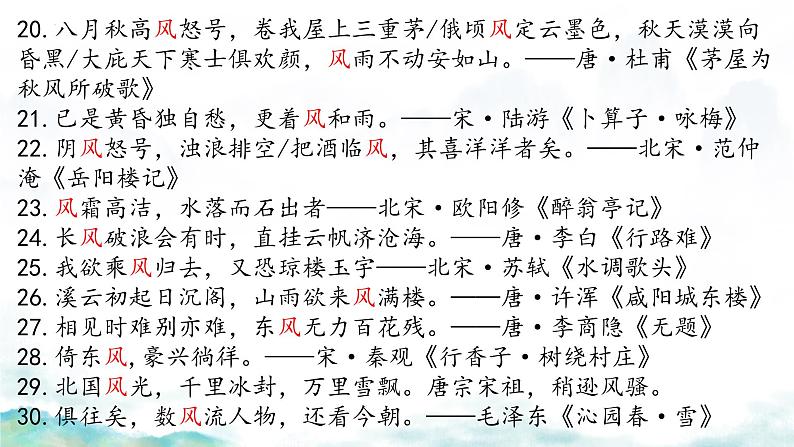 20. 八月秋高风怒号，卷我屋上三重茅/俄顷风定云墨色，秋天漠漠向
昏黑/大庇天下寒士俱欢颜，风雨不动安如山。——唐·杜甫《茅屋为
秋风所破歌》
21. 已是黄昏独自愁，更着风和雨。——宋·陆游《卜算子·咏梅》
22. 阴风怒号，浊浪排空/把酒临风，其喜洋洋者矣。——北宋·范仲
淹《岳阳楼记》
23. 风霜高洁，水落而石出者——北宋·欧阳修《醉翁亭记》
24. 长风破浪会有时，直挂云帆济沧海。——唐·李白《行路难》
25. 我欲乘风归去，又恐琼楼玉宇——北宋·苏轼《水调歌头》
26. 溪云初起日沉阁，山雨欲来风满楼。——唐·许浑《咸阳城东楼》
27. 相见时难别亦难，东风无力百花残。——唐·李商隐《无题》
28. 倚东风,豪兴徜徉。——宋·秦观《行香子·树绕村庄》
29. 北国风光，千里冰封，万里雪飘。唐宗宋祖，稍逊风骚。
30. 俱往矣，数风流人物，还看今朝。——毛泽东《沁园春·雪》